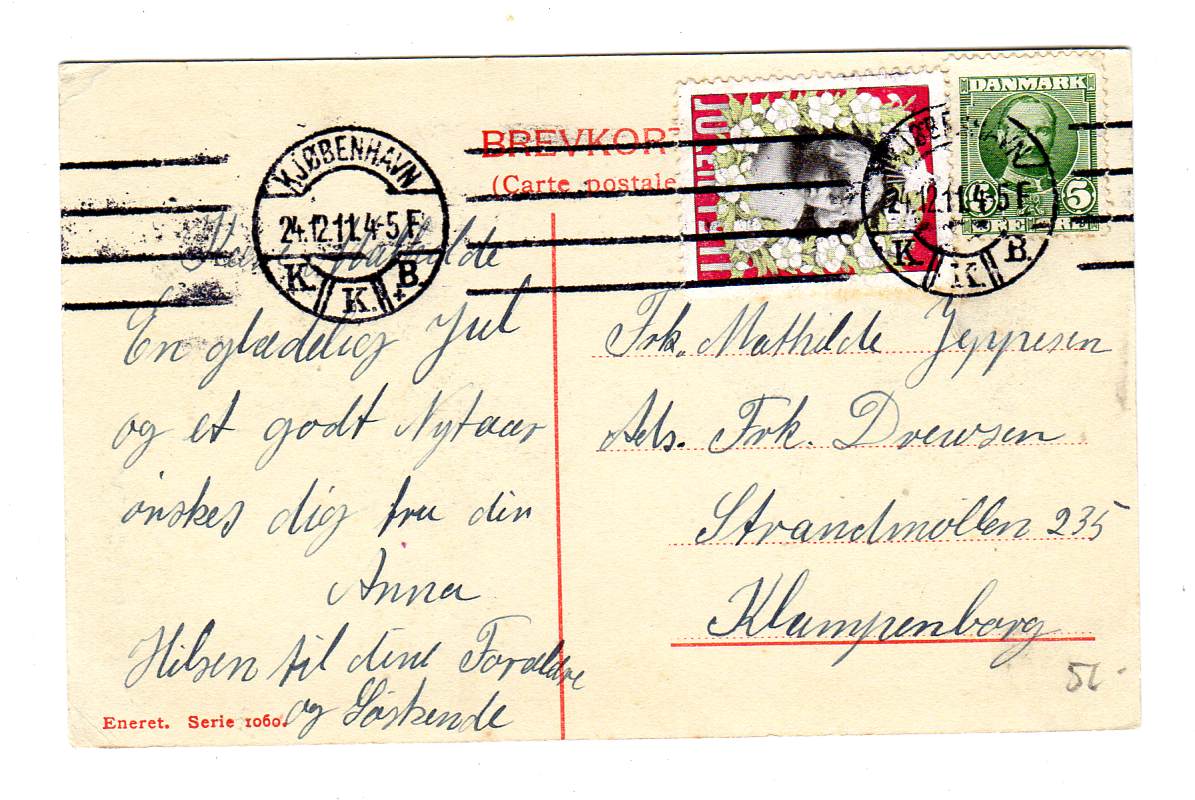 BREVKORT
(Carte postale
DANMARK
5 5
ØRE
KJØBENHAVN
24.12.11.4-5 F
K. K. B.
KJØBENHAVN
24.12.11.4-5 F
K K. B.
JULEN
Kære Mathilde
En glædelig Jul
og et godt Nytaar
ønskes dig fra din
Anna
Hilsen til dine Forældre
og Søskende
Frk. Mathilde Jeppesen
Ads. Frk. Drewsen
Strandmøllen 235
Klampenborg
Eneret. Serie 1060.